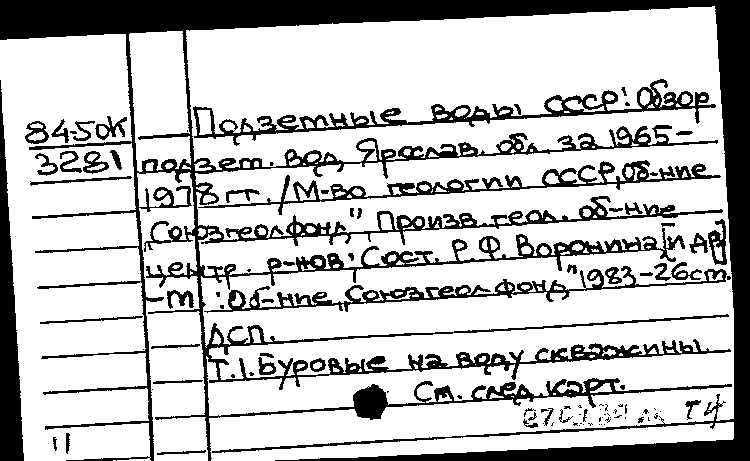 84-5ДК
3281
Подземные воды СССР: Обзор
подзет. вод Яросláв. обл. за 1965-
1978 гг. /М-во геологии СССР, Об-ние
„Союзгеолфонд", Произв. геол. об-ние
центр. р-нов; Сост. Р.Ф. Воронина [и др]
-М.: Об-ние „Союзгеолфонд," 1983-26см.
ДСП.
Т.1. Буровые на воду скважины.
См. след. карт.
ТИ
11